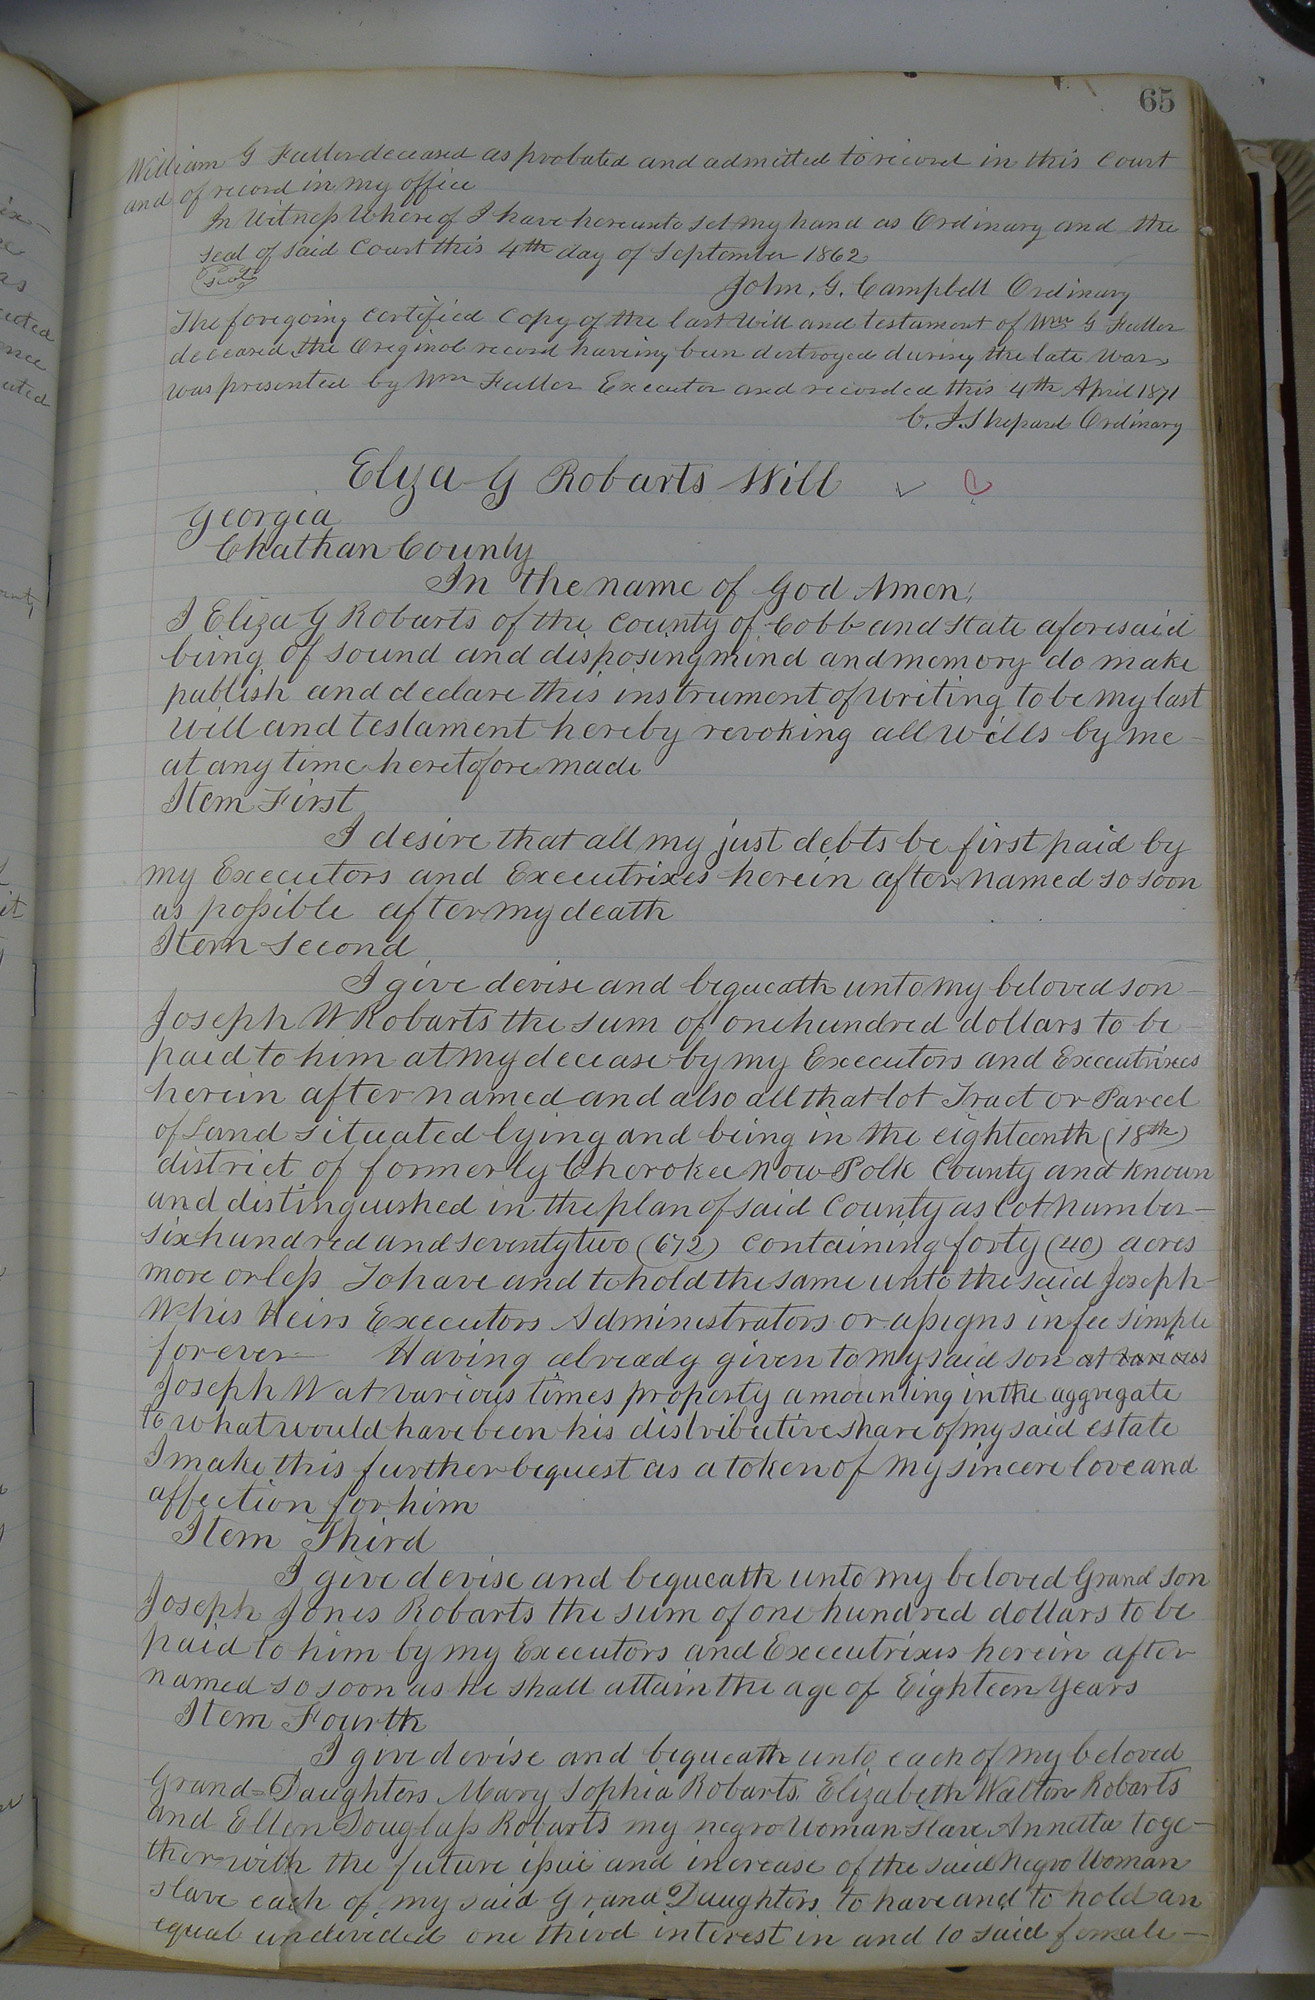 65
William G Fuller deceased as probated and admitted to record in this Court
and of record in my office
In Witness Whereof I have hereunto set my hand as Ordinary and the
seal of said Court this 4th day of September 1862
(seal)
John. G. Campbell Ordinary
The foregoing certified Copy of the last Will and testament of Wm G Fuller
deceased the Original record having been destroyed during the late War,
was presented by Wm Fuller Executor and recorded this 4th April 1871
C. J. Shepard Ordinary
Eliza G Robarts Will
Georgia
Chathan County
In the name of God Amen,
I Eliza G Robarts of the County of Cobb and State aforesaid
being of sound and disposing mind and memory do make
publish and declare this instrument of writing to be my last
Will and testament hereby revoking all Wills by me
at any time heretofore made
Item First
I desire that all my just debts be first paid by
my Executors and Executrixes herein after named so soon
as possible after my death
Item Second
I give devise and bequeath unto my beloved son
Joseph W Robarts the sum of one hundred dollars to be
paid to him at my decease by my Executors and Executrixes
herein after named and also all that lot Tract or Parcel
of Land situated lying and being in the eighteenth (18th)
district of formerly Cherokee now Polk County and known
and distinguished in the plan of said County as Lot number
six hundred and seventy two (672) containing forty (40) acres
more or less To have and to hold the same unto the said Joseph
W his Heirs Executors Administrators or assigns in fee simple
forever Having already given to my said son at various
Joseph W at various times property amounting in the aggregate
to what would have been his distributive share of my said estate
I make this further bequest as a token of my sincere love and
affection for him
Item Third
I give devise and bequeath unto my beloved Grand son
Joseph Jones Robarts the sum of one hundred dollars to be
paid to him by my Executors and Executrixes herein after
named so soon as he shall attain the age of Eighteen Years
Item Fourth
I give devise and bequeath unto each of my beloved
Grand=Daughters Mary Sophia Robarts Elizabeth Walton Robarts
and Ellen Douglass Robarts my negro Woman Slave Annetta toge-
ther with the future issue and increase of the said Negro Woman
slave each of my said Grand Daughters to have and to hold an
equal undivided one third interest in and to said female